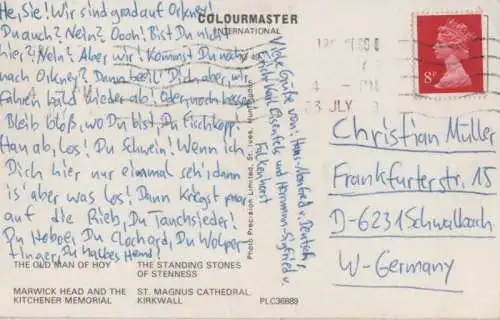 He, Sie! Wir sind grad auf Orkney!
Du auch? Nein? Oooh! Bist Du nicht
hier? Nein? Aber wir! Kommst Du noch
nach Orkney? Dann beeil' Dich aber, wir
fahren bald wieder ab! Oder noch besser
Bleib bloß, wo Du bist, Du Fischkopf!
Hau ab, los! Du Schwein! Wenn ich
Dich hier nur einmal seh', dann
is' aber was los! Dann kriegst my
auf die Rieb, Du Tauchsieder!
Du Heber, Du Clochard, Du Wolper-
tinger, Du halbes Hemd!
THE OLD MAN OF HOY
THE STANDING STONES
OF STENNESS
MARWICK HEAD AND THE
KITCHENER MEMORIAL
ST. MAGNUS CATHEDRAL,
KIRKWALL
PLC36889
COLOURMASTER
INTERNATIONAL
Photo Precision Limited, St. Ives, Huntingdon
Viele Grüße von: Hans-Manfred v. Deutsch,
und Hermann-Siegfried v.
Falkenhorst
8P
JULY
Christian Müller
Frankfurterstr. 15
D-6231 Schwalbach
W-Germany